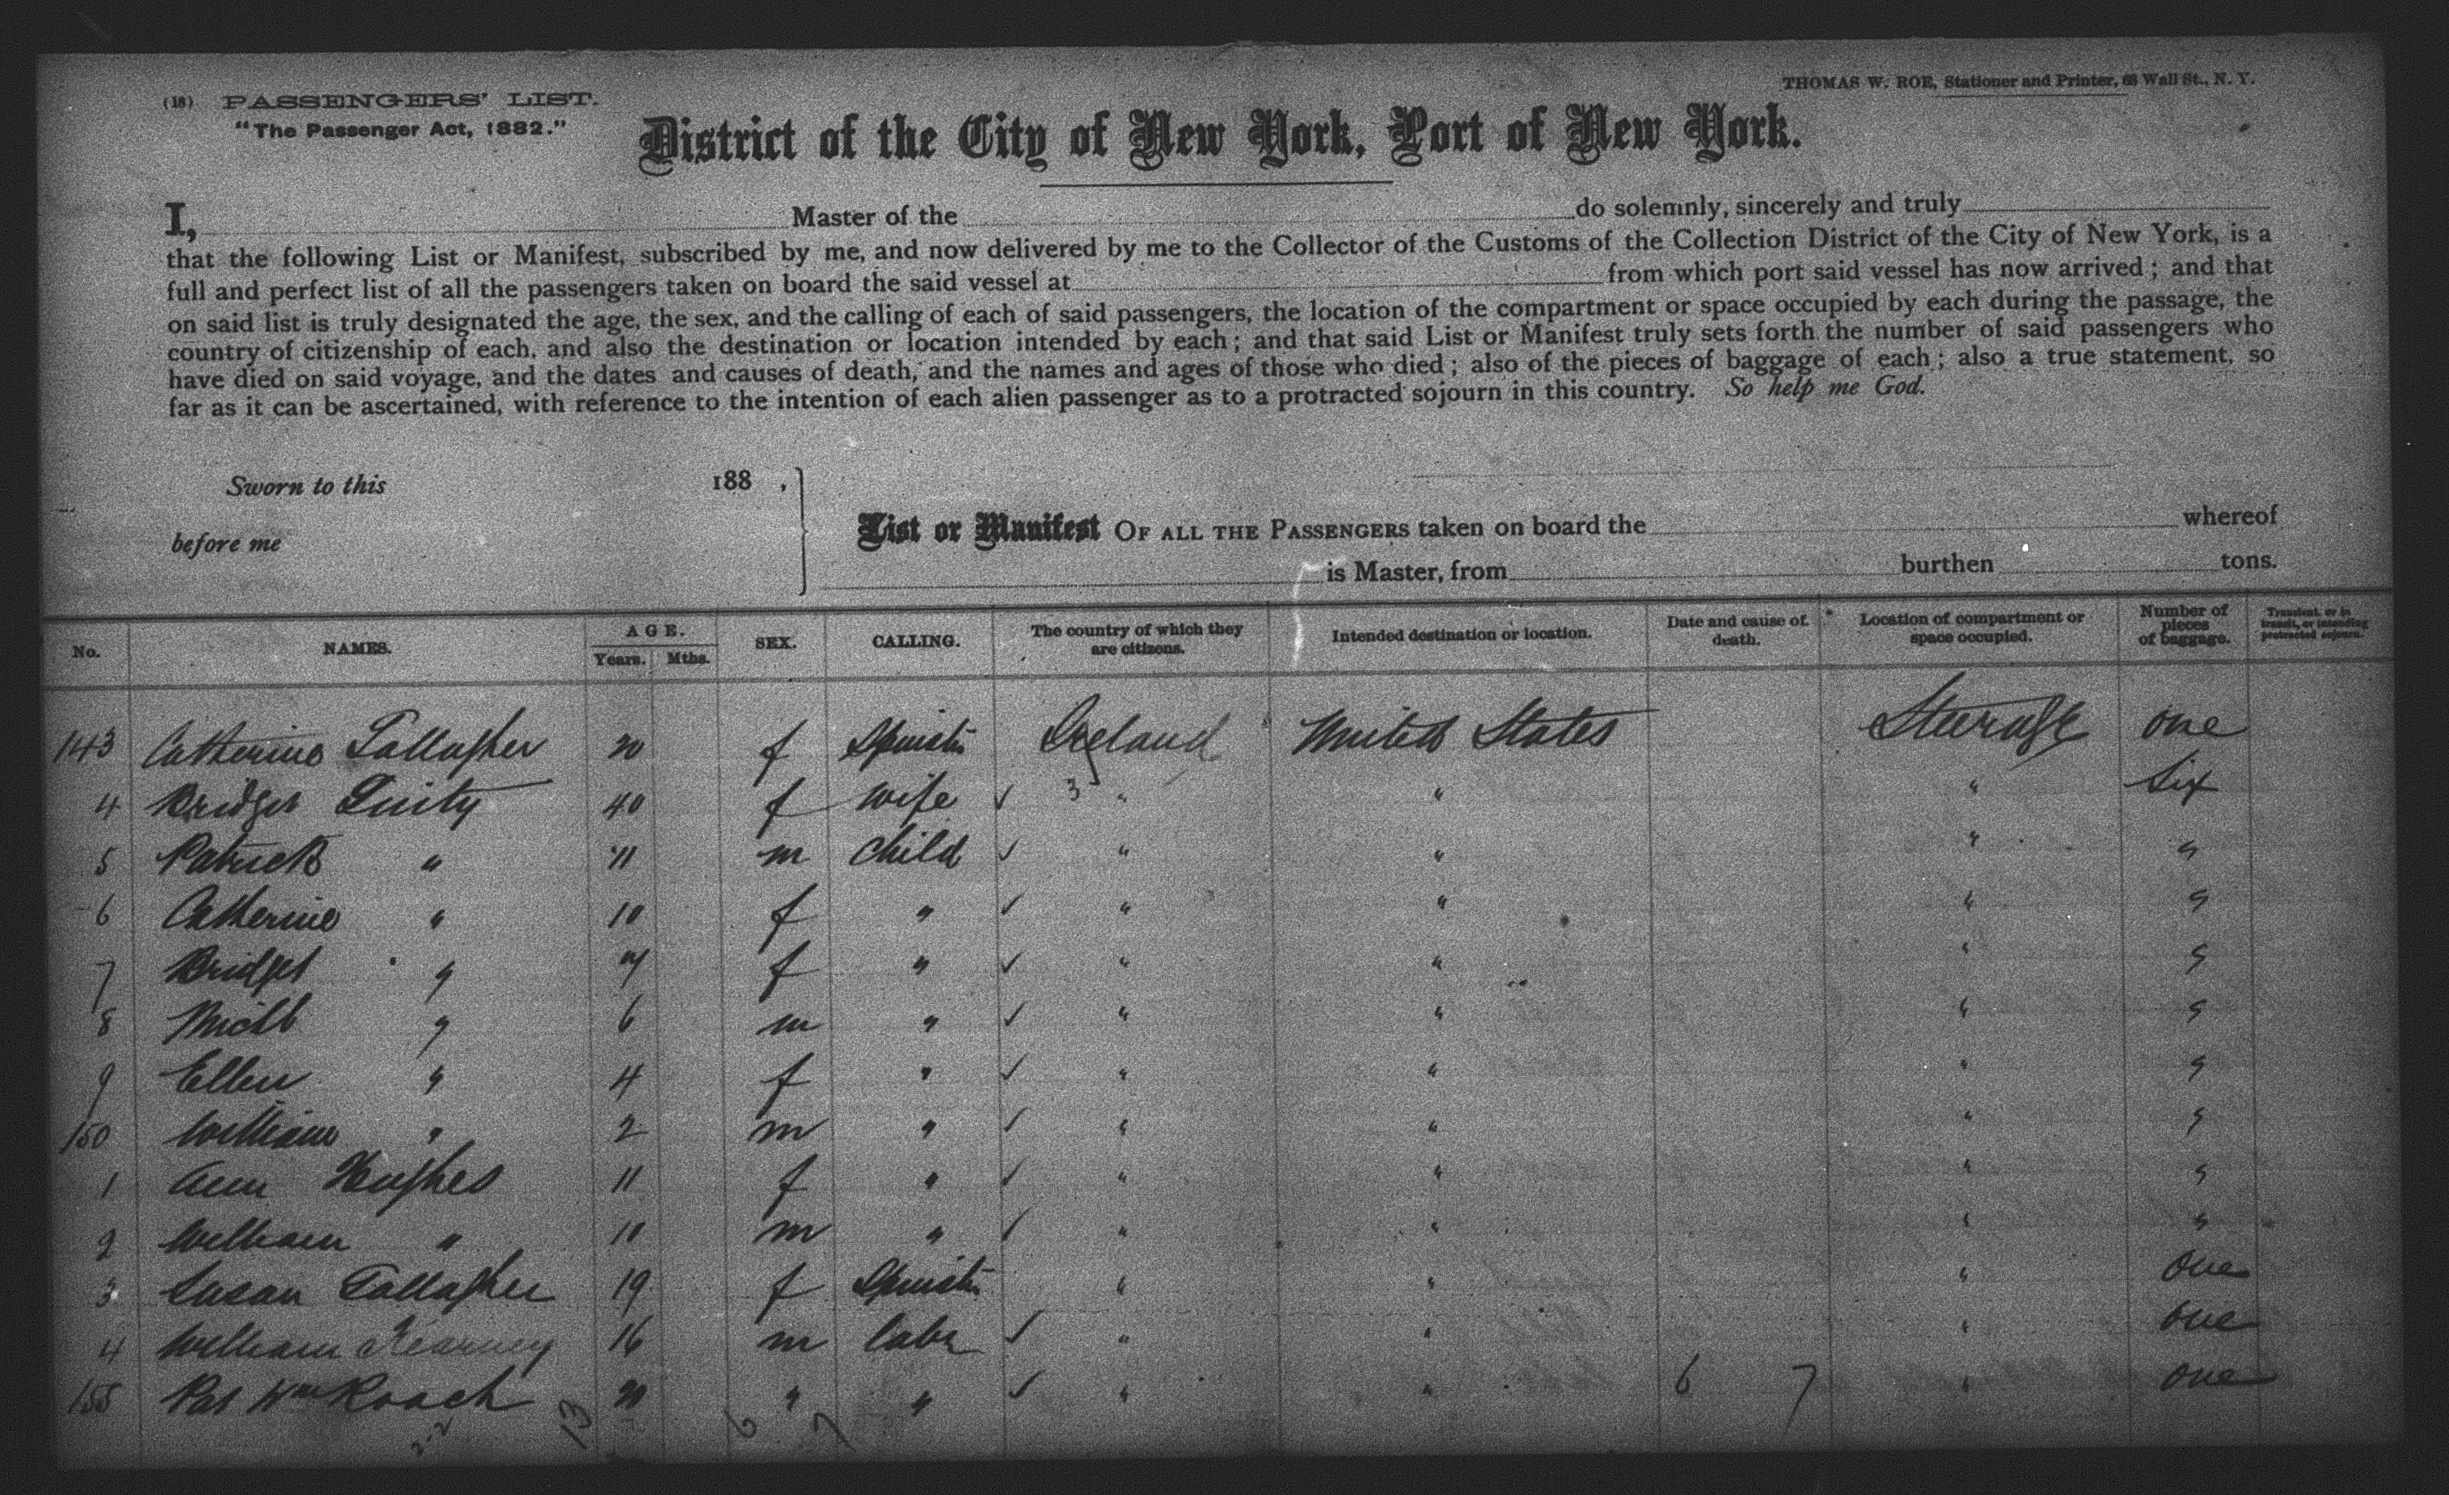 (18) PASSENGERS' LIST.
THOMAS W. ROE, Stationer and Printer, 68 Wall St., N. Y.
"The Passenger Act, 1882."
District of the City of New York, Port of New York.
I, Master of the do solemnly, sincerely and truly
that the following List or Manifest, subscribed by me, and now delivered by me to the Collector of the Customs of the Collection District of the City of New York, is a
full and perfect list of all the passengers taken on board the said vessel at from which port said vessel has now arrived; and that
on said list is truly designated the age, the sex, and the calling of each of said passengers, the location of the compartment or space occupied by each during the passage, the
country of citizenship of each, and also the destination or location intended by each; and that said List or Manifest truly sets forth the number of said passengers who
have died on said voyage, and the dates and causes of death, and the names and ages of those who died; also of the pieces of baggage of each; also a true statement, so
far as it can be ascertained, with reference to the intention of each alien passenger as to a protracted sojourn in this country. So help me God.
Sworn to this 188 ,
before me
List or Manifest OF ALL THE PASSENGERS taken on board the whereof
is Master, from burthen tons.
No. NAMES. AGE. Years. Mths. SEX. CALLING. The country of which they are citizens. Intended destination or location. Date and cause of death. Location of compartment or space occupied. Number of pieces of baggage. Transient, or in transit, or intending protracted sojourn.
143 Catherine Gallagher 20 f Spinstr Ireland United States Steerage one
4 Bridget 40 f wife ✓ 3 " " " Six
5 Patrick " 11 m child ✓ " " " "
6 Catherine " 10 f " ✓ " " " "
7 Bridget " f " ✓ " " " "
8 Michl " 6 m " ✓ " " " "
9 Ellen " 4 f " ✓ " " " "
150 William " 2 m " ✓ " " " "
1 Ann Hughes 11 f " ✓ " " " "
2 William " 10 m " ✓ " " " "
3 Susan Gallagher 19 f Spinstr " " " one
4 William Kearney 16 m labr ✓ " " " one
155 Pat Wm Roach 20 " " ✓ " " 6 7 " one
2-2 13 6 7